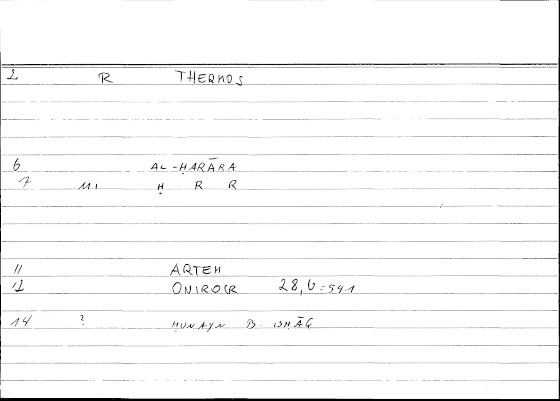 2 R THERMOS
6 AL-ḤARĀRA
7 MI Ḥ R R
11 ARTEM
12 ONIROCR 28,6=541
14 ? ḤUNAYN B. ISḤĀQ